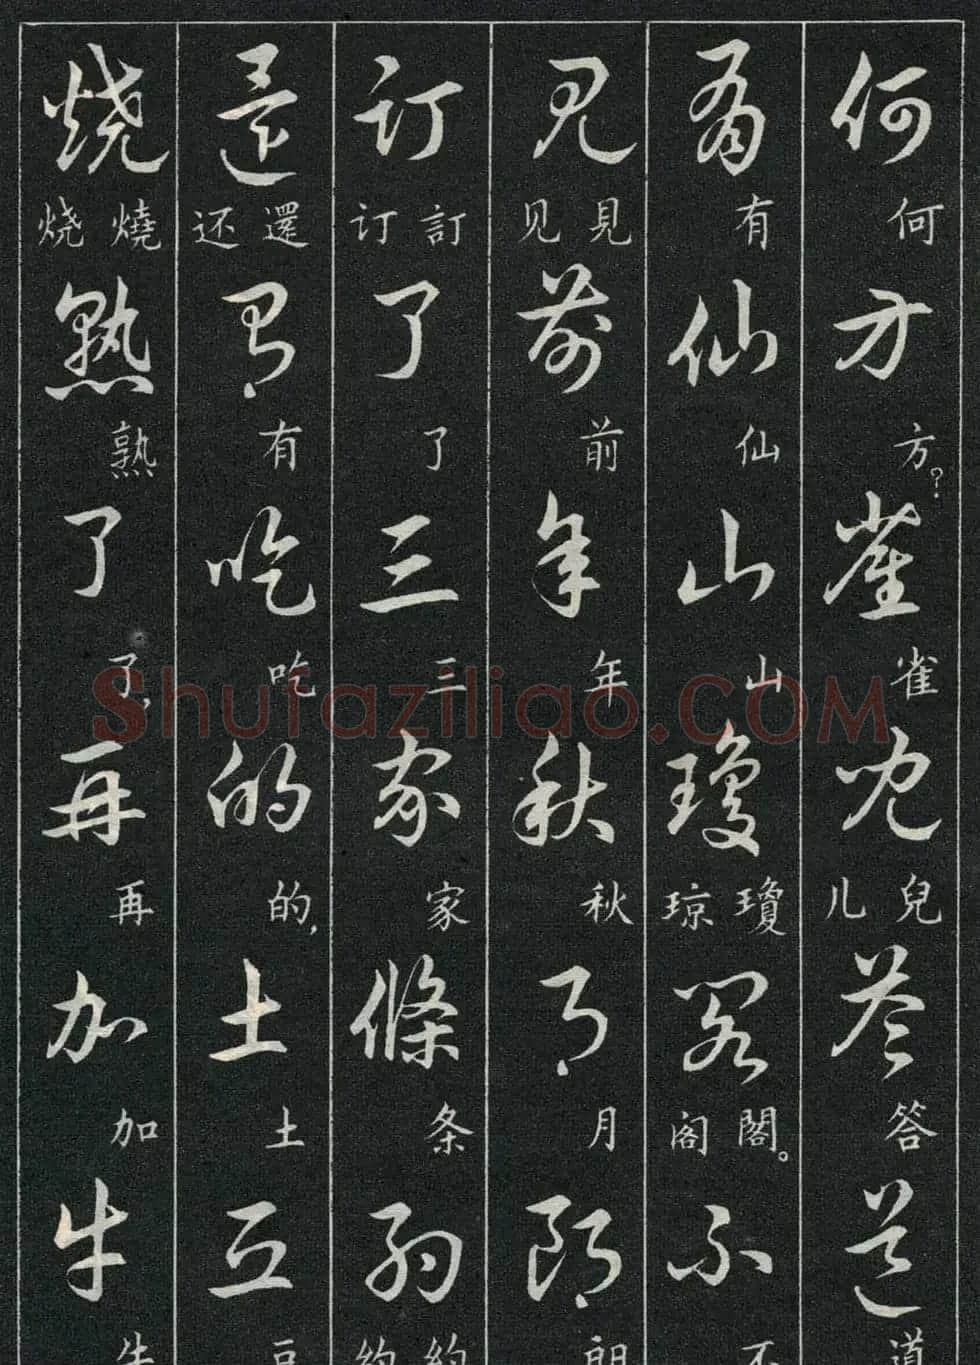 何何方方？雀雀兒兒儿答答道道
有有仙仙山山瓊瓊琼閣閣阁。不不
見見见前前年年秋秋月月朗朗
訂訂订了了三三家家條条約約约
還還还有有吃吃的的，土土豆豆
燒燒烧熟熟了了，再再加加牛牛
Shufaziliao.COM